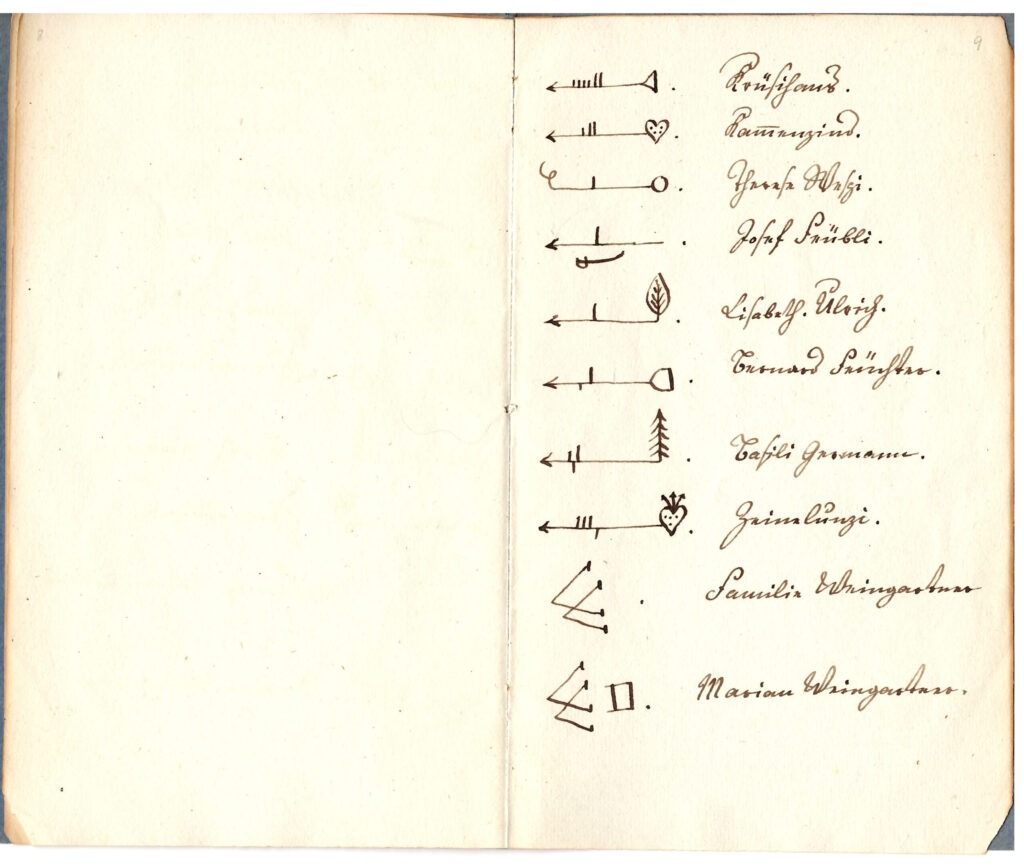 8
9
Krüsihans.
Kam̅enzind.
Therese Wespi.
Josef Frübli.
Lisabeth. Ulrich.
Bernard Feüchter.
Basili Germann.
Zeinelunzi.
Familie Weingartner
Marian Weingartner.